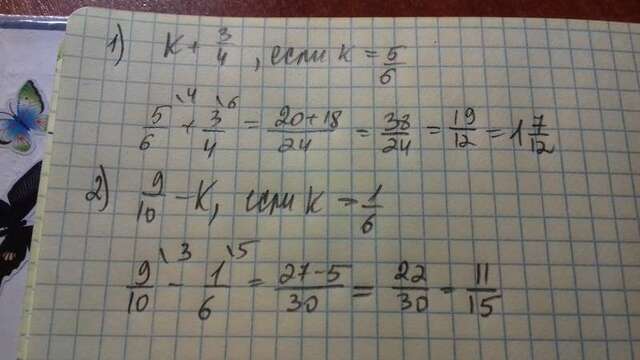 1) к + 3/4, если к = 5/6
5/6 \4 + 3/4 \6 = 20+18/24 = 38/24 = 19/12 = 1 7/12
2) 9/10 - к, если к = 1/6
9/10 \3 - 1/6 \5 = 27-5/30 = 22/30 = 11/15